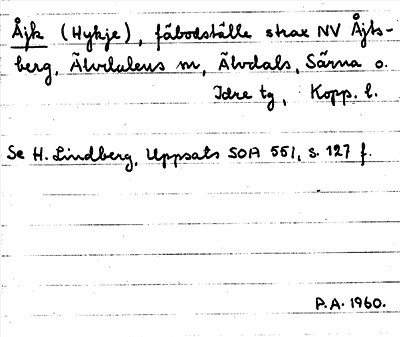 Åjk (Hykje), fäbodställe strax NV Åjks-
berg, Älvdalens sn, Älvdals, Särna o.
Idre tg, Kopp. l.
Se H. Lindberg, Uppsats SOA 551, s. 127 f.
P.A. 1960.